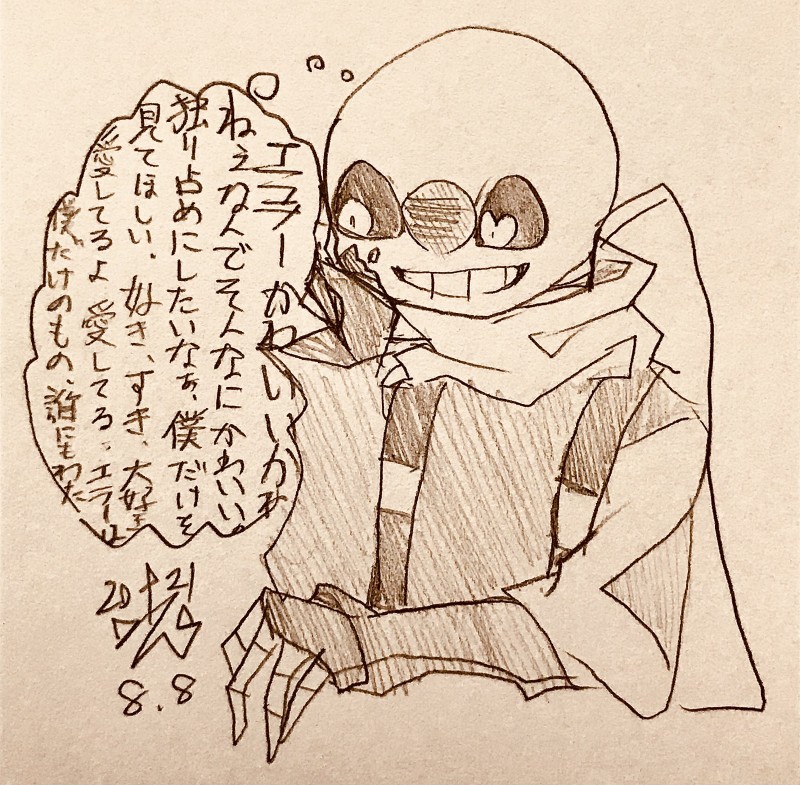 エラーかわいいかわ
ねえなんでそんなにかわいい
独り占めにしたいなぁ、僕だけを
見てほしい、好き、すき、大好き
愛してるよ 愛してる、エラーは
僕だけのもの、誰にもわた
20 21
8.8